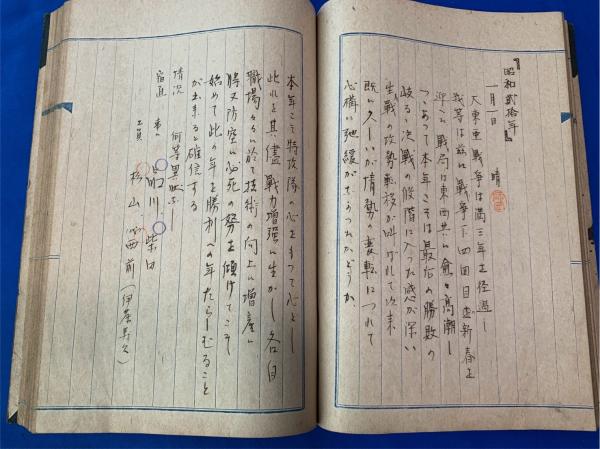 『昭和貳拾年』
一月一日　晴
大東亜戦争は満三年を経過し
我等は茲に戦争下四回目の新春を
迎へた戦局は東西共に愈々高潮し
つゝあつて本年こそは最后の勝敗の
岐る決戦の段階に入つた感が深い
生戦の攻勢転移が叫ばれて以来
既に久しいが情勢の変転につれて
心構に弛緩がなかつたかどうか
本年こそ特攻隊の心をもつて心とし
此れを其儘戦力増強に生かし各自
職場々々に於て技術の向上に増産に
将又防空に必死の努力を傾けてこそ
始めて此の年を勝利への年たらしむること
が出来ると確信する
情況　何等異状ナシ
宿直　川　柴田
工員　杉山　前（伊藤